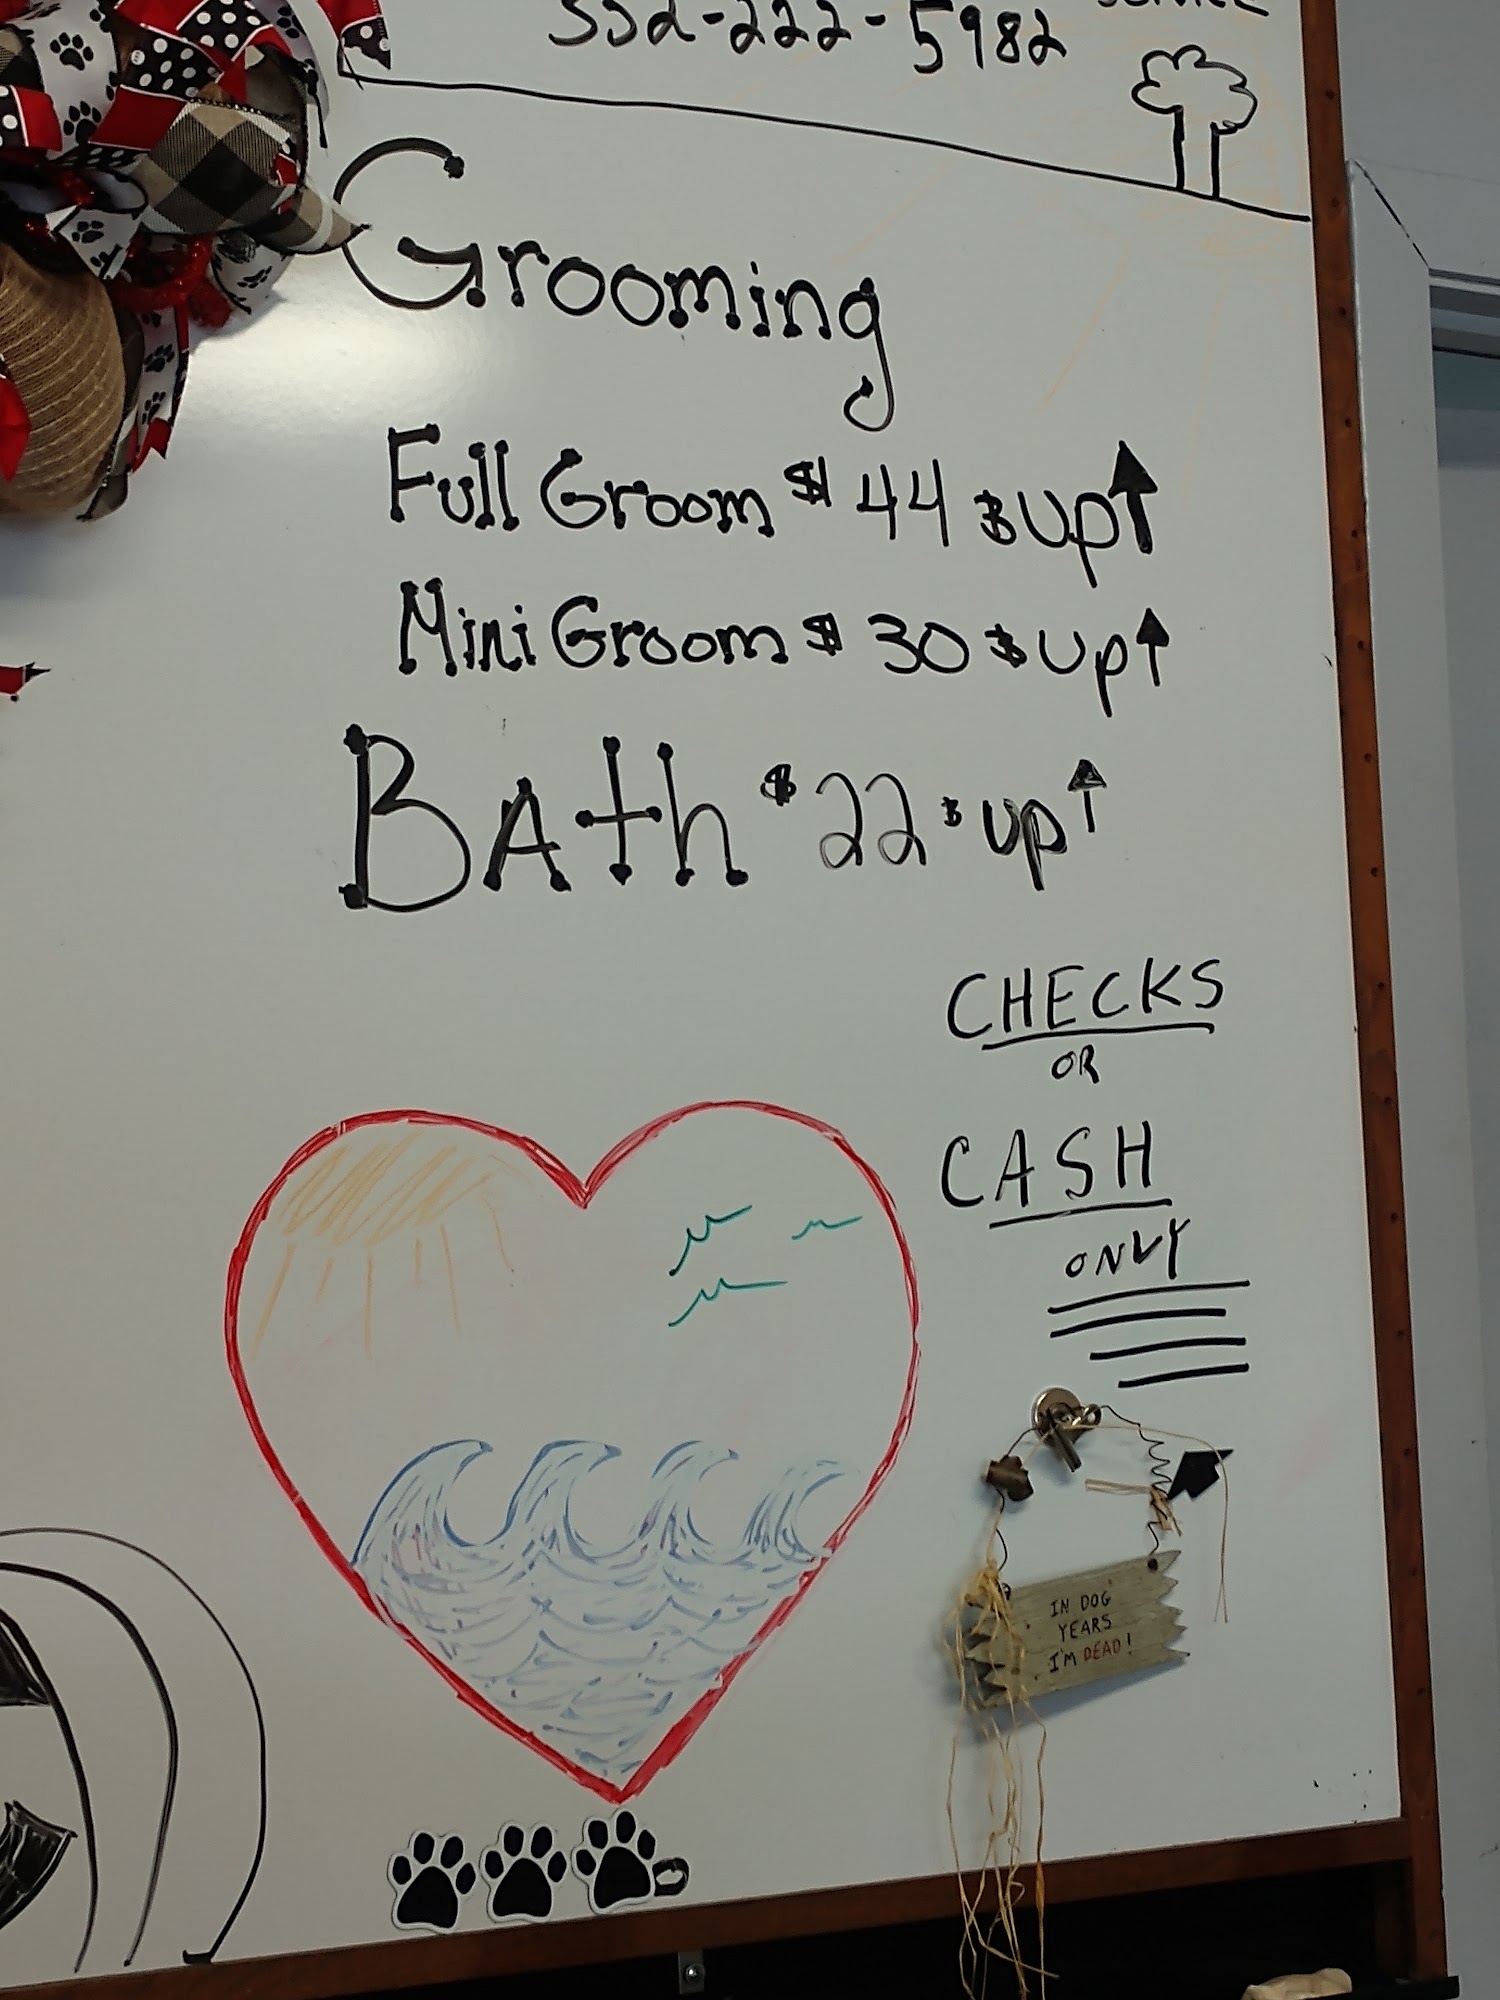 352-222-5982
Grooming
Full Groom $ 44 $ Up↑
Mini Groom $ 30 $ Up↑
BAth $ 22 $ up↑
CHECKS
OR
CASH
ONLY
IN DOG
YEARS
I'M DEAD!